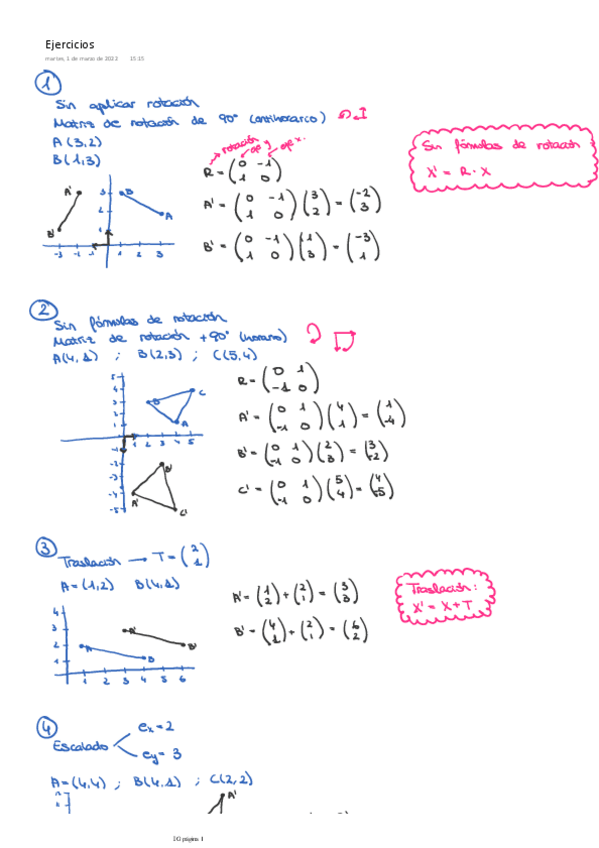 Ejercicios
martes, 1 de marzo de 2022 15:15
1
Sin aplicar rotación
Matriz de rotación de 90° (antihorario)
A(3,2)
B(1,3)
rotación
eje y
eje x.
R = (0 -1; 1 0)
A' = (0 -1; 1 0)(3; 2) = (-2; 3)
B' = (0 -1; 1 0)(1; 3) = (-3; 1)
Sin fórmulas de rotación
X' = R · X
A'
B'
B
A
3
2
1
-3 -2 -1 1 2 3
2
Sin fórmulas de rotación
Matriz de rotación +90° (horario)
A(4,1) ; B(2,3) ; C(5,4)
R = (0 1; -1 0)
A' = (0 1; -1 0)(4; 1) = (1; -4)
B' = (0 1; -1 0)(2; 3) = (3; -2)
C' = (0 1; -1 0)(5; 4) = (4; -5)
5
4
3
2
1
B
C
A
1 2 3 4 5
-1
-2
-3
-4
-5
B'
A'
C'
3
Traslación → T = (2; 1)
A = (1,2) B(4,1)
A' = (1; 2) + (2; 1) = (3; 3)
B' = (4; 1) + (2; 1) = (6; 2)
Traslación:
X' = X + T
4
3
2
1
A'
B'
A
B
1 2 3 4 5 6
4
Escalado
ex = 2
ey = 3
A = (4,4) ; B(4,1) ; C(2,2)
A'
DG página 1